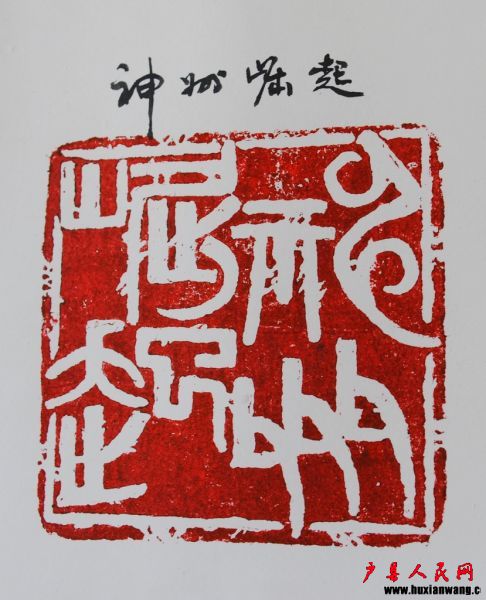 神州崛起
神州
崛起
户县人民网
www.huxianwang.c